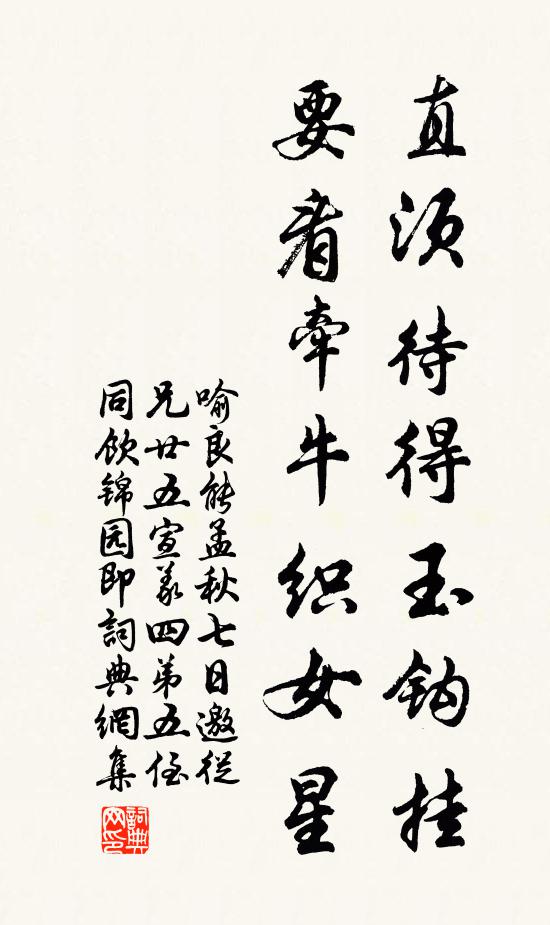 直须待得玉钩挂
要看牵牛织女星
喻良能孟秋七日邀従
兄廿五宣义四弟五侄
同饮锦园即詞典網集
詞典网印